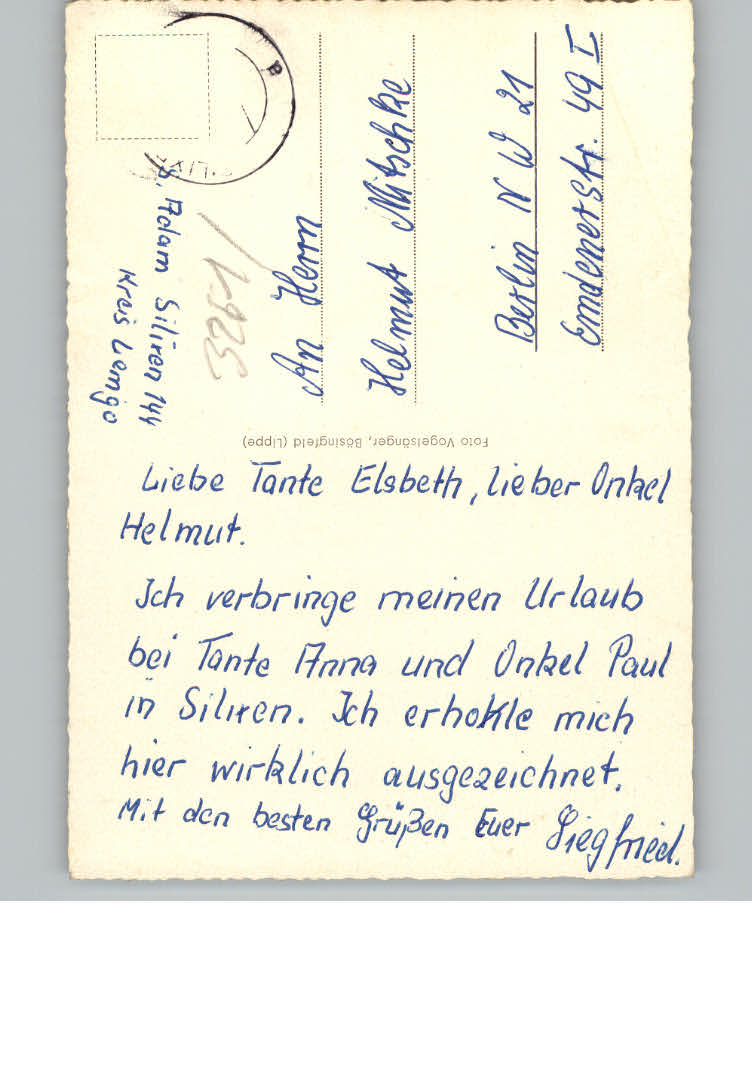 An Herrn
Helmut Mitschke
Berlin N W 21
Emdener Str. 49 I
Adam Silixen 144
Kreis Lemgo
Foto Vogelsänger, Bösingfeld (Lippe)
Liebe Tante Elsbeth, lieber Onkel
Helmut.
Ich verbringe meinen Urlaub
bei Tante Anna und Onkel Paul
in Silixen. Ich erhohle mich
hier wirklich ausgezeichnet.
Mit den besten Grüßen Euer Siegfried.